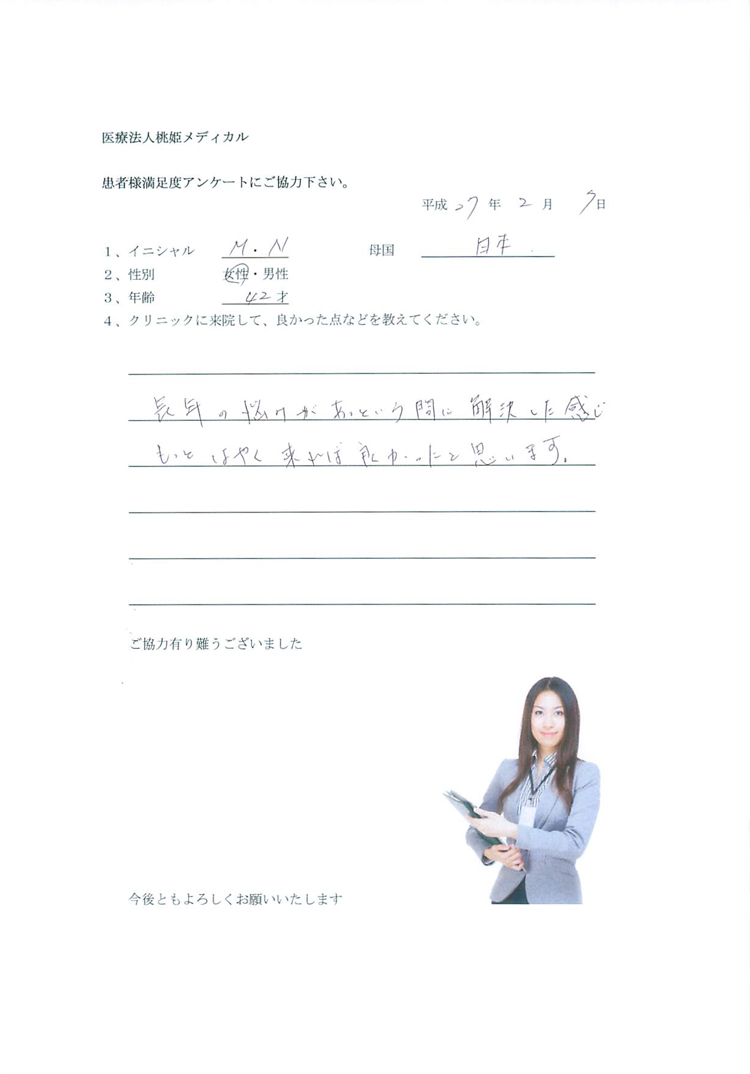 医療法人桃姫メディカル
患者様満足度アンケートにご協力下さい。
平成 27 年 2 月 9日
1、イニシャル M・N 母国 日本
2、性別 女性・男性
3、年齢 42才
4、クリニックに来院して、良かった点などを教えてください。
長年の悩みがあっという間に解決した感じ
もっとはやく来れば良かったと思います。
ご協力有り難うございました
今後ともよろしくお願いいたします